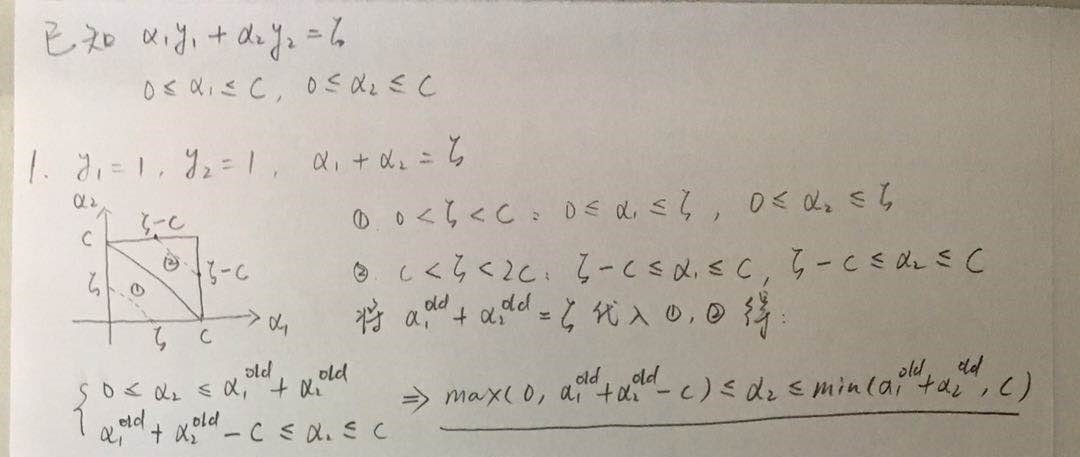 已知 α₁y₁ + α₂y₂ = ζ
0 ≤ α₁ ≤ C, 0 ≤ α₂ ≤ C
1. y₁ = 1, y₂ = 1, α₁ + α₂ = ζ
α₂
C
ζ-C
ζ
①
②
ζ-C
ζ
C
α₁
①. 0 < ζ < C: 0 ≤ α₁ ≤ ζ, 0 ≤ α₂ ≤ ζ
②. C < ζ < 2C: ζ-C ≤ α₁ ≤ C, ζ-C ≤ α₂ ≤ C
将 α₁^old + α₂^old = ζ 代入 ①, ② 得:
{ 0 ≤ α₂ ≤ α₁^old + α₂^old
α₁^old + α₂^old - C ≤ α₂ ≤ C
⇒ max(0, α₁^old + α₂^old - C) ≤ α₂ ≤ min(α₁^old + α₂^old, C)